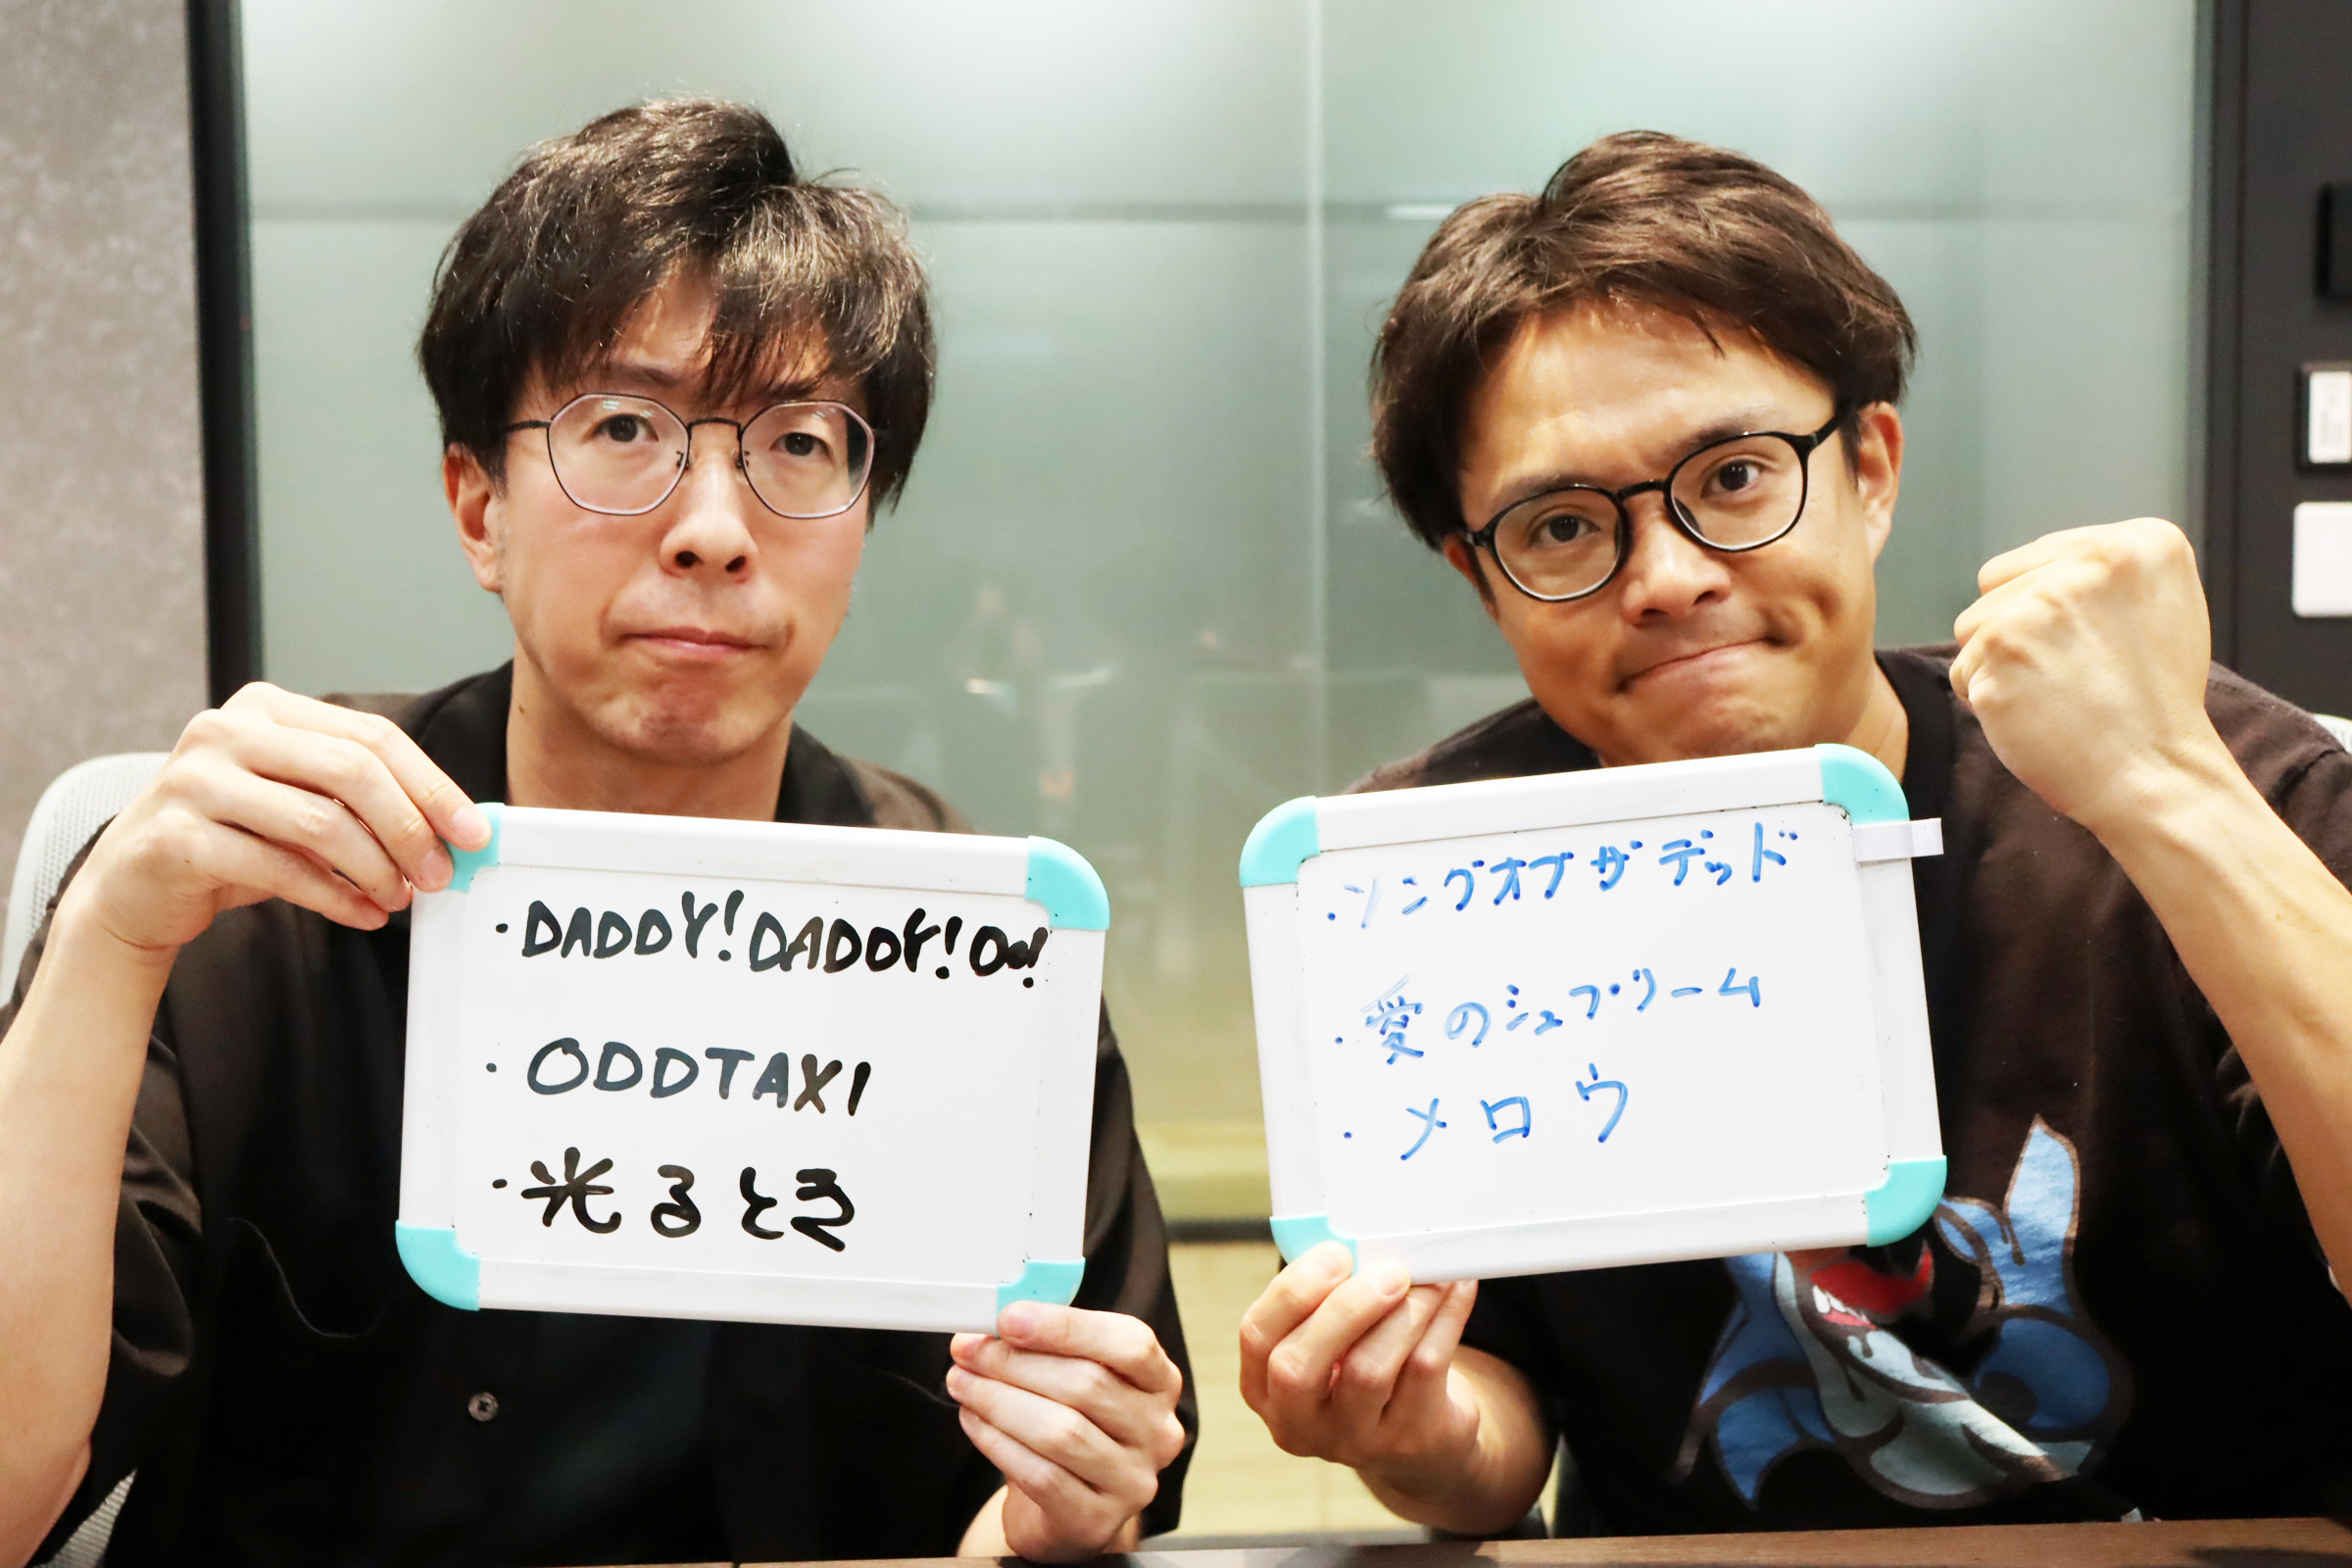 ・DADDY!DADDY!Do!
・ODDTAXI
・光るとき
・ソングオブザデッド
・愛のシュプリーム
・メロウ